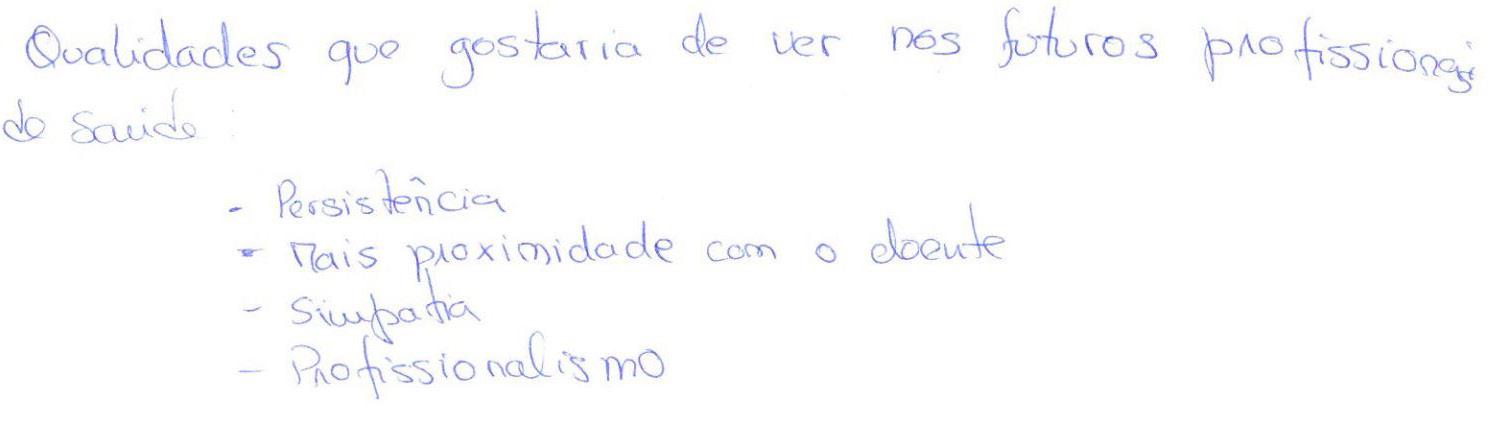 Qualidades que gostaria de ver nos futuros profissionais
de saúde:
- Persistência
- Mais proximidade com o doente
- Simpatia
- Profissionalismo